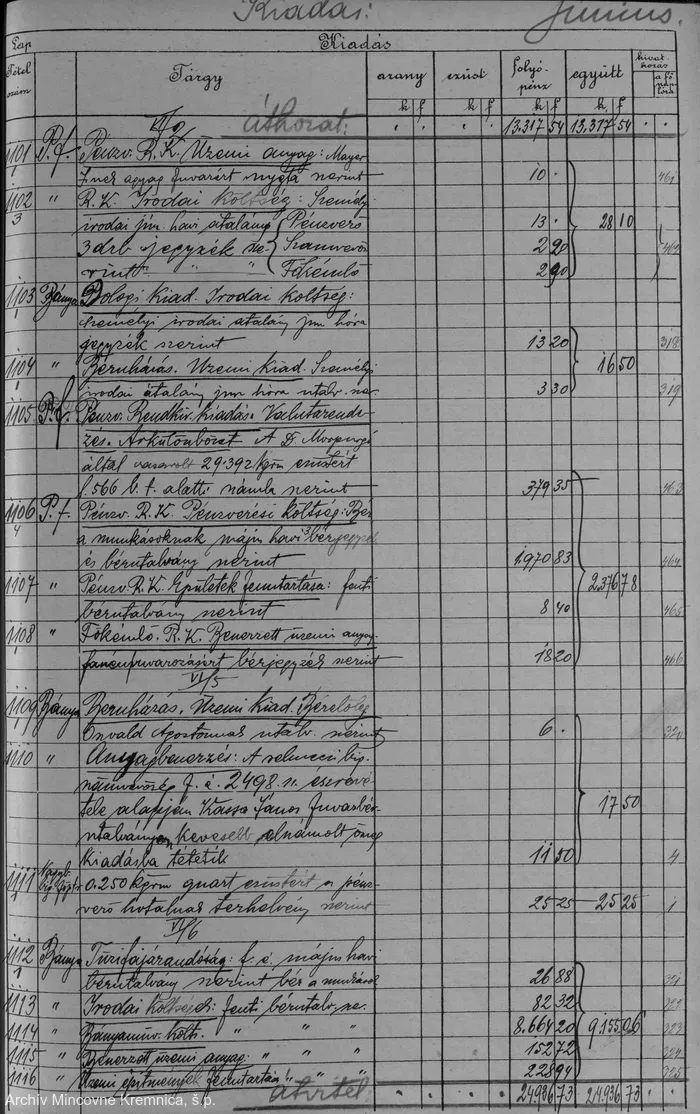 Kiadás. Junius.
Lap Kiadás
Tétel szám Tárgy arany ezüst folyópénz együtt hivatkozás a főnaplóra
k f k f k f k f
VI/2 áthozat: 13.317 54 13.317 54
1101 P.f. Pénzv. R.K. Üzemi anyag: Mayer
nyugta szerint 10 · 461
1102 " R.K. Irodai költség: Személyi
3 irodai jun. havi átalány Pénzverő 13 · 28 10
3 drb jegyzék sze- Számvevős 2 90 462
rint " " Főkémlő 2 90
1103 Bánya Dologi Kiad. Irodai költség:
személyi irodai átalány jun hóra
jegyzék szerint 13 20 318
1104 " Beruházás. Üzemi Kiad. Személyi 16 50
irodai átalány jun hóra utalv. sze. 3 30 319
1105 P.f. Pénzv. Rendkiv. Kiadás. Valutarende-
zés. Árkülönbözet. A D. Morpurgo
által vásárolt 29.392 kgrm ezüstért
f. 566 b. f. alatti számla szerint 379 35 463
1106 P.f. Pénzv. R.K. Pénzverési költség: Bér
4 a munkásoknak május havi 3 bérjegyzék
és bérutalvány szerint 1.970 83 464
1107 " Pénzv. R.K. Épületek fenntartása: fenti 2.376 78
bérutalvány szerint 8 40 465
1108 " Főkémlő. R.K. Beszerzett üzemi anyag.
bérjegyzék szerint 18 20 466
VI/5
1109 Bánya Beruházás. Üzemi Kiad. Bérelőleg
Oswald Agostonnak utalv. szerint 6 · 320
1110 " Anyagbeszerzés: A selmeczi big.
számvevőség f. é. 2498 sz. észrevé-
tele alapján Kassa János fuvarbér- 17 50
utalványon kevesebb elszámolt összeg
Kiadásba tétetik 11 50 4
1111 0.250 kgrm quart ezüstért a pénz-
verő hivatalnak terhelvény szerint 25 25 25 25 1
VI/6
1112 Bánya Tüzifajárandóság: f. é. május havi
bérutalvány szerint bér a munkások 26 88 321
1113 " Irodai költségek: fenti bérutalv. sze. 82 32 322
1114 " Bányamüv. költs. " " " 8.664 20 9.155 06 323
1115 " Beszerzett üzemi anyag: " " " 152 72 324
1116 " Üzemi épitmények fenntartása " " " 228 94 325
átvitel: 24.936 73 24.936 73
Archív Mincovne Kremnica, š.p.